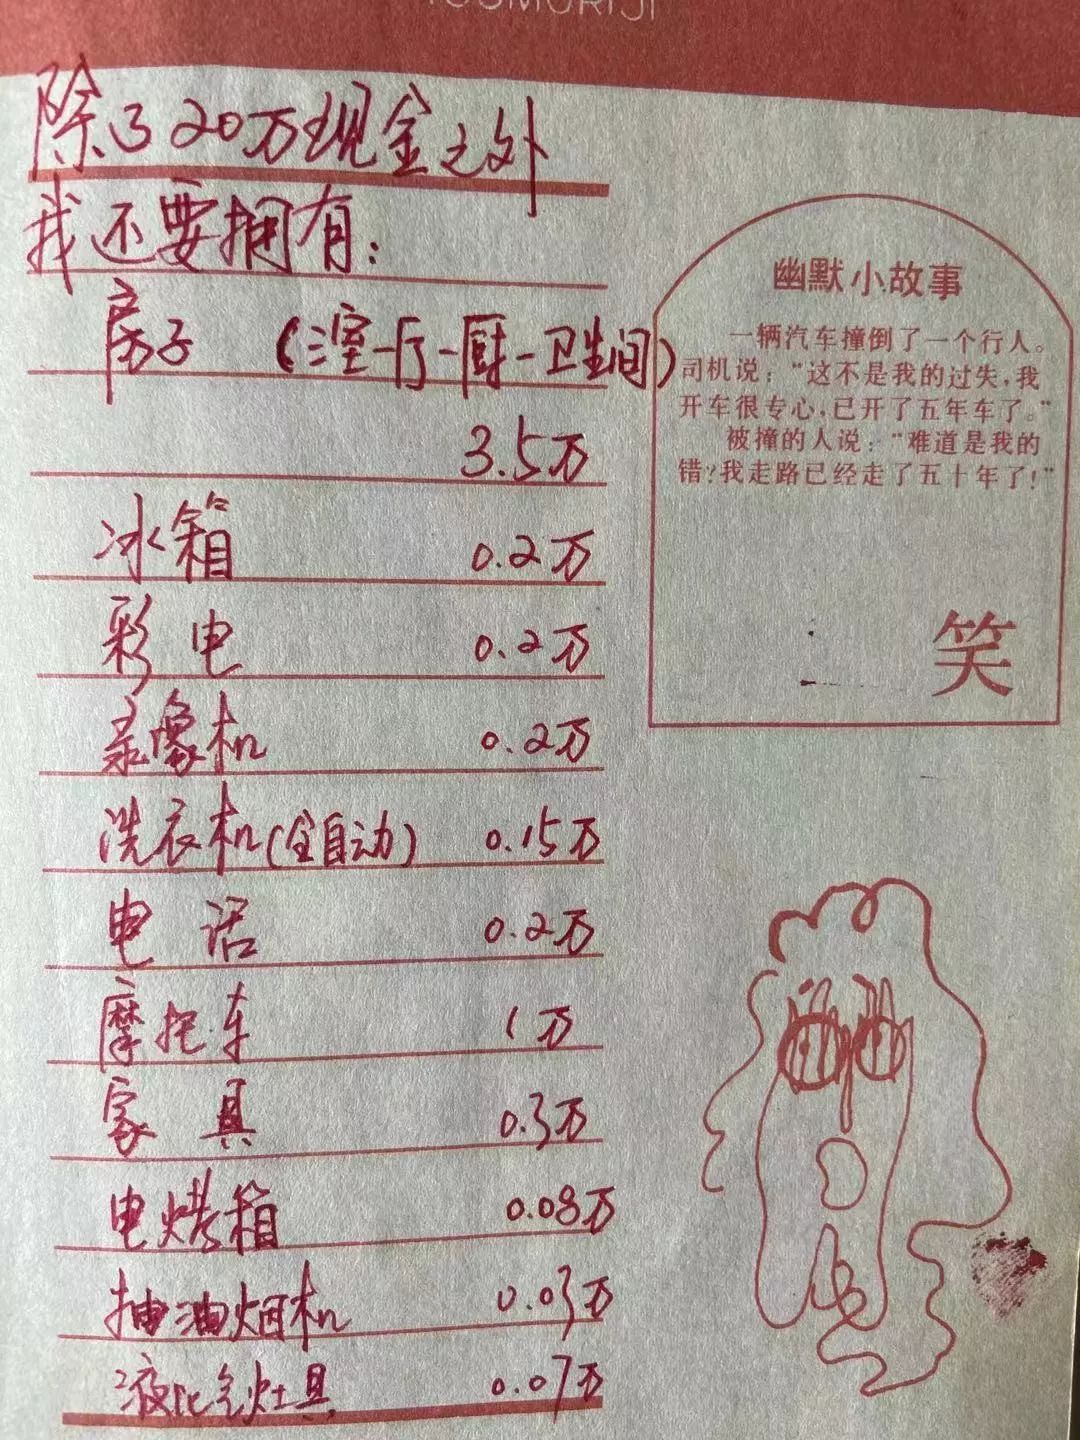 除了20万现金之外
我还要拥有：
房子 （三室一厅一厨一卫生间）
3.5万
冰箱 0.2万
彩电 0.2万
录像机 0.2万
洗衣机（全自动） 0.15万
电话 0.2万
摩托车 1万
家具 0.3万
电烤箱 0.08万
抽油烟机 0.03万
液化气灶具 0.07万
幽默小故事
一辆汽车撞倒了一个行人。
司机说："这不是我的过失，我
开车很专心，已开了五年车了。"
被撞的人说："难道是我的
错？我走路已经走了五十年了！"
笑